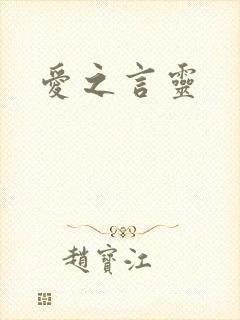 愛之言靈
趙寶江